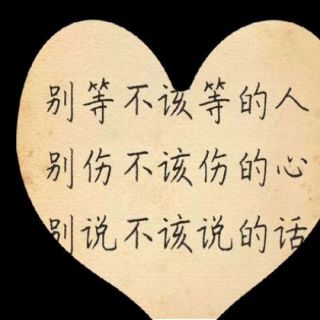 别等不该等的人
别伤不该伤的心
别说不该说的话